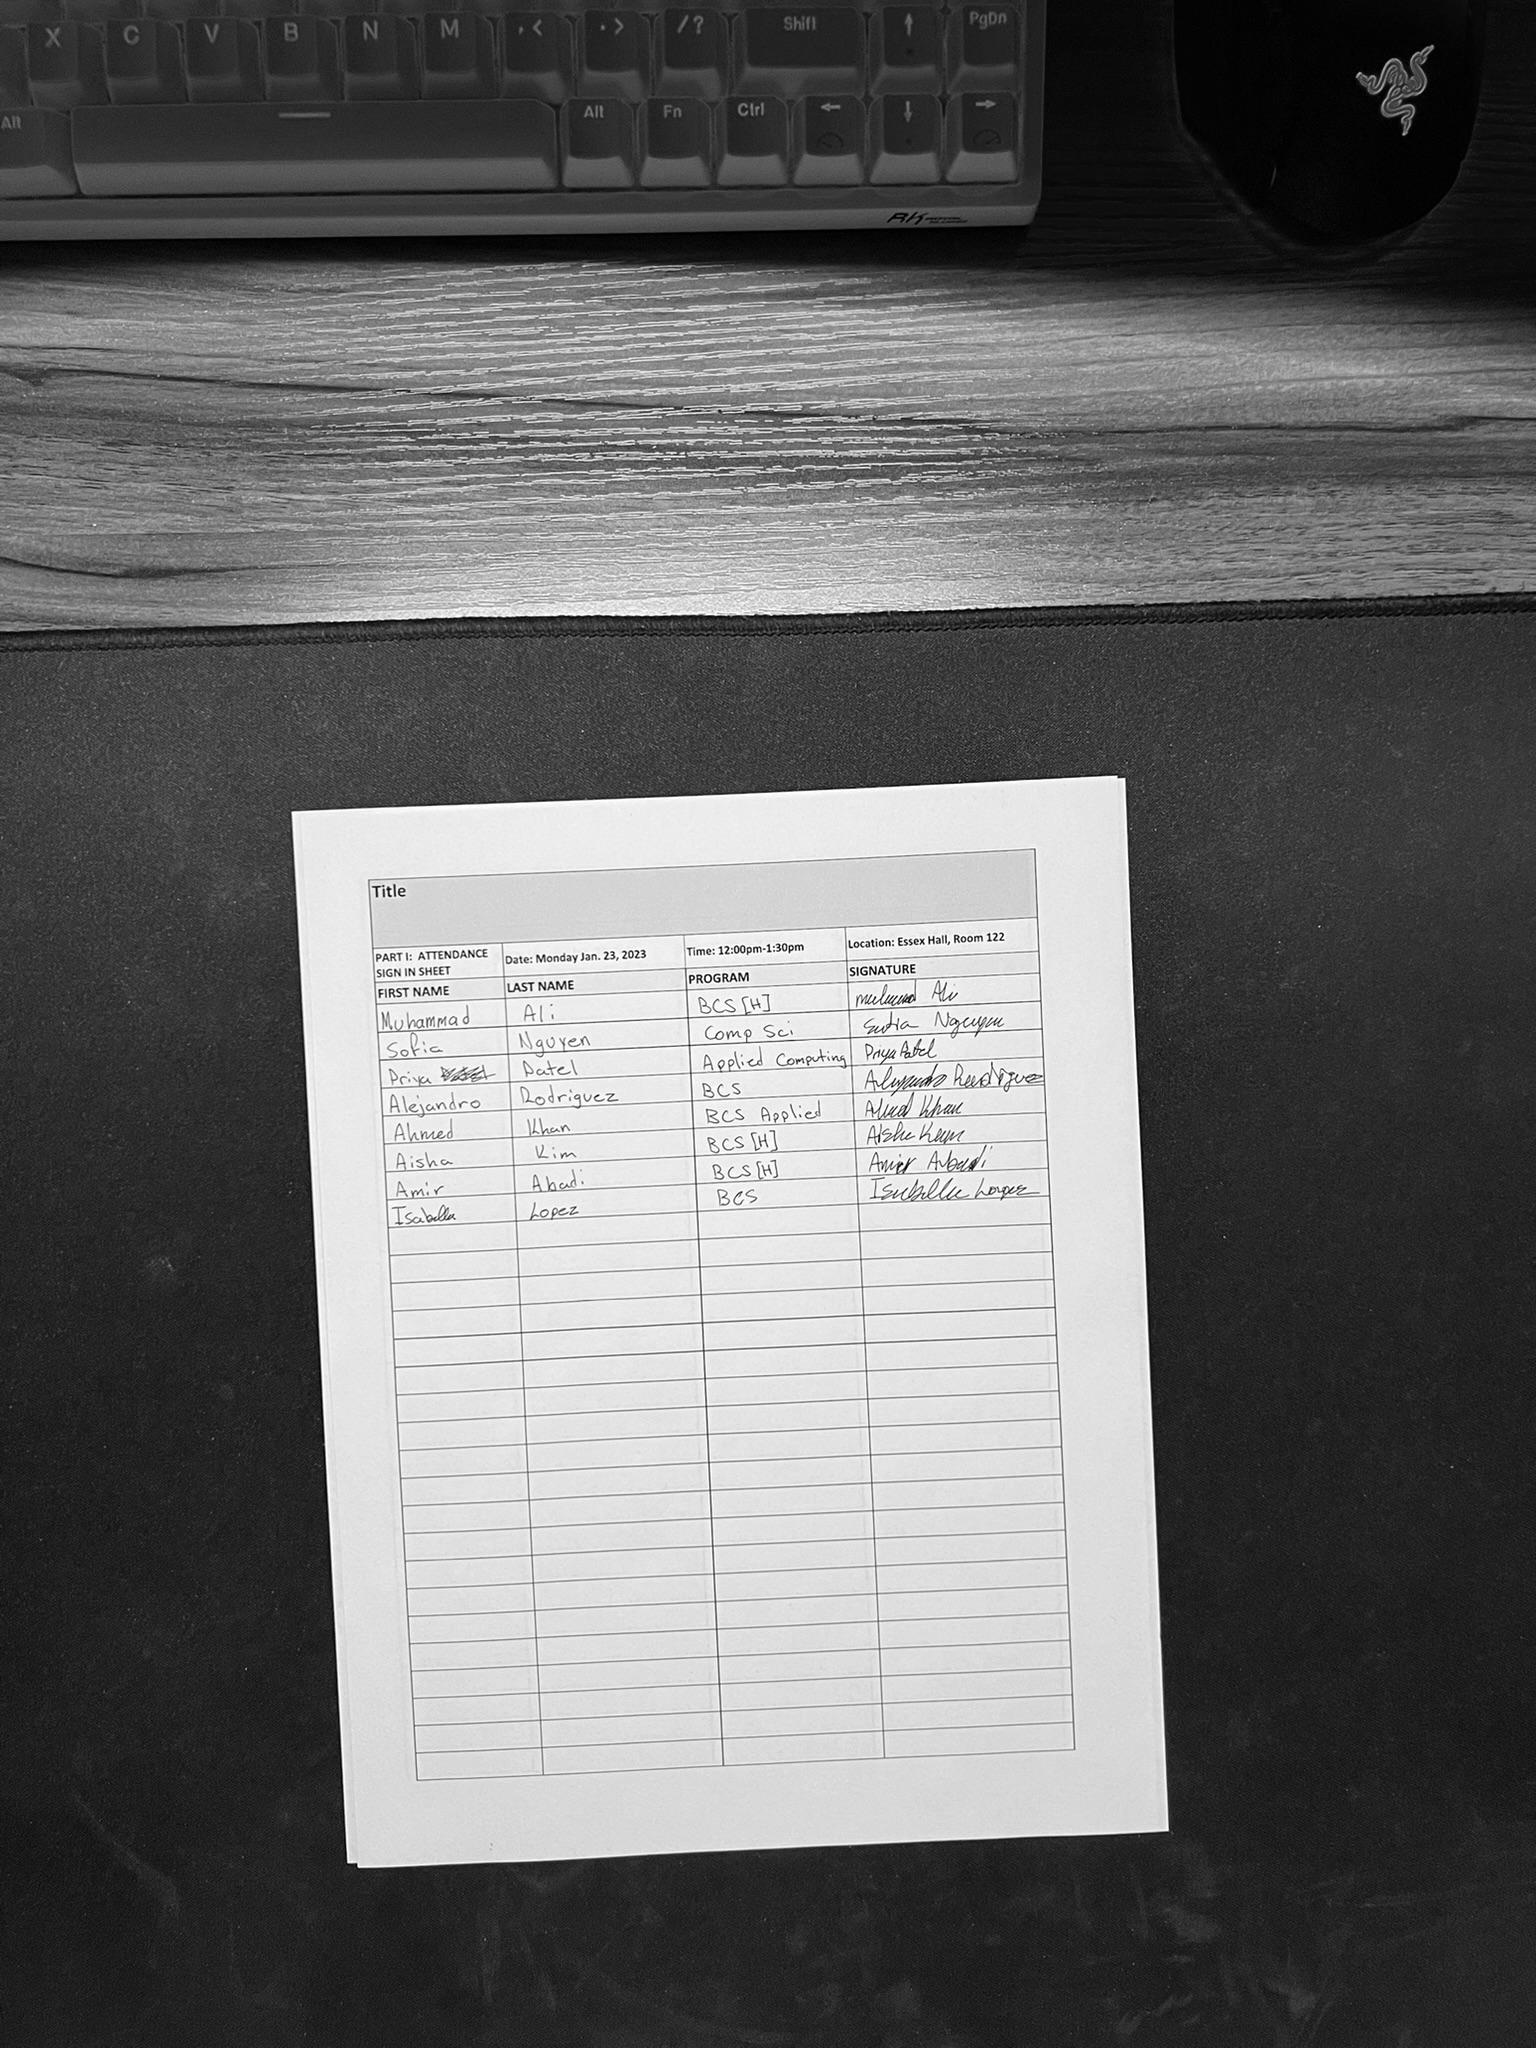 X C V B N M , < . > / ? Shift ↑ PgDn
Alt Alt Fn Ctrl ← ↓ →
RK
Title
PART I: ATTENDANCE SIGN IN SHEET Date: Monday Jan. 23, 2023 Time: 12:00pm-1:30pm Location: Essex Hall, Room 122
FIRST NAME LAST NAME PROGRAM SIGNATURE
Muhammad Ali BCS [H] Ali
Sofia Nguyen Comp Sci Sofia Nguyen
Priya Patel Applied Computing Priya Patel
Alejandro Rodriguez BCS Alejandro Rodriguez
Ahmed Khan BCS Applied Ahmed Khan
Aisha Kim BCS [H] Aisha Kim
Amir Abadi BCS [H] Amir Abadi
Isabella Lopez BCS Isabella Lopez